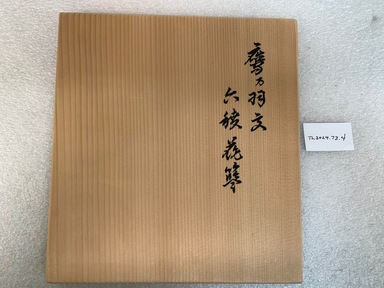 鷹乃羽文
六稜花簪
TL2024.72.4